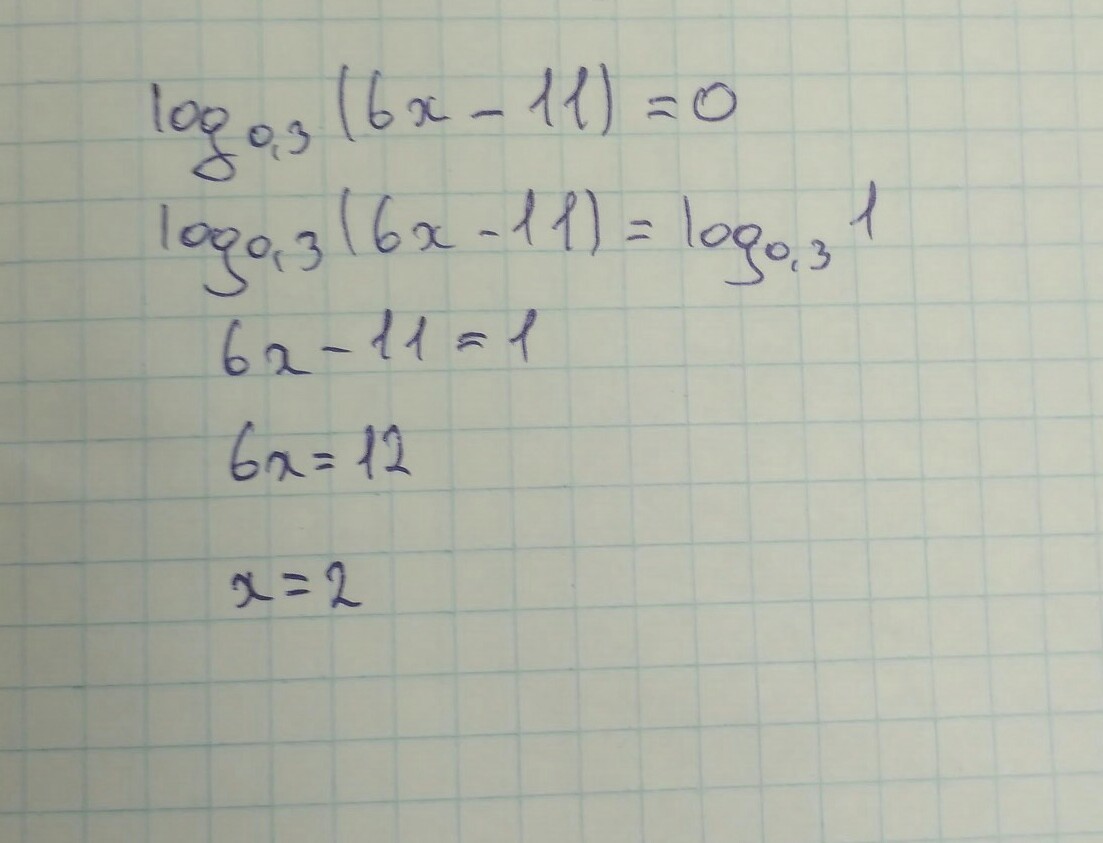 log₀,₃ (6x - 11) = 0
log₀,₃ (6x - 11) = log₀,₃ 1
6x - 11 = 1
6x = 12
x = 2